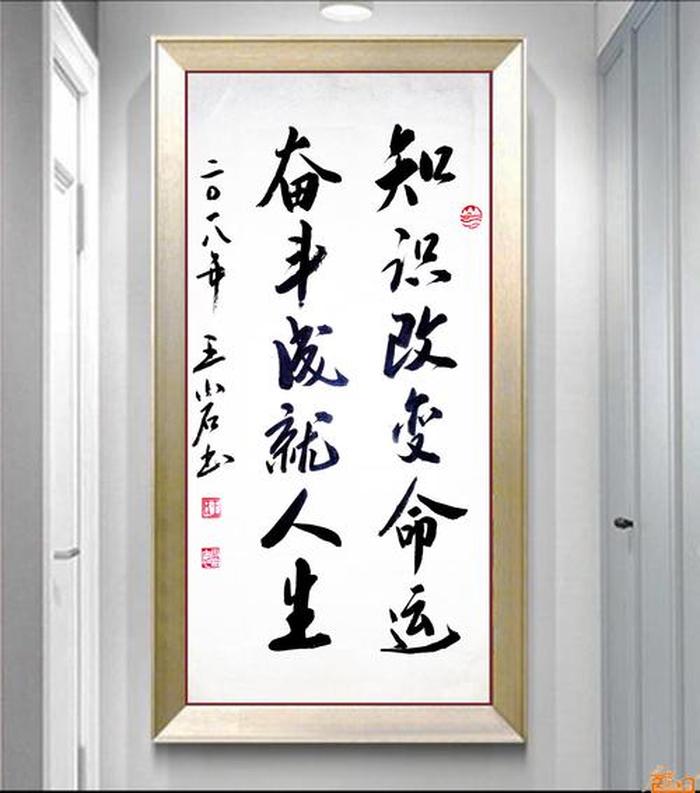 知识改变命运
奋斗成就人生
二〇一八年 王小岩书